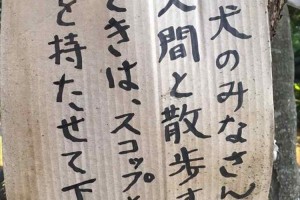 犬のみなさん
人間と散歩す
ときは、スコップと
を持たせて下